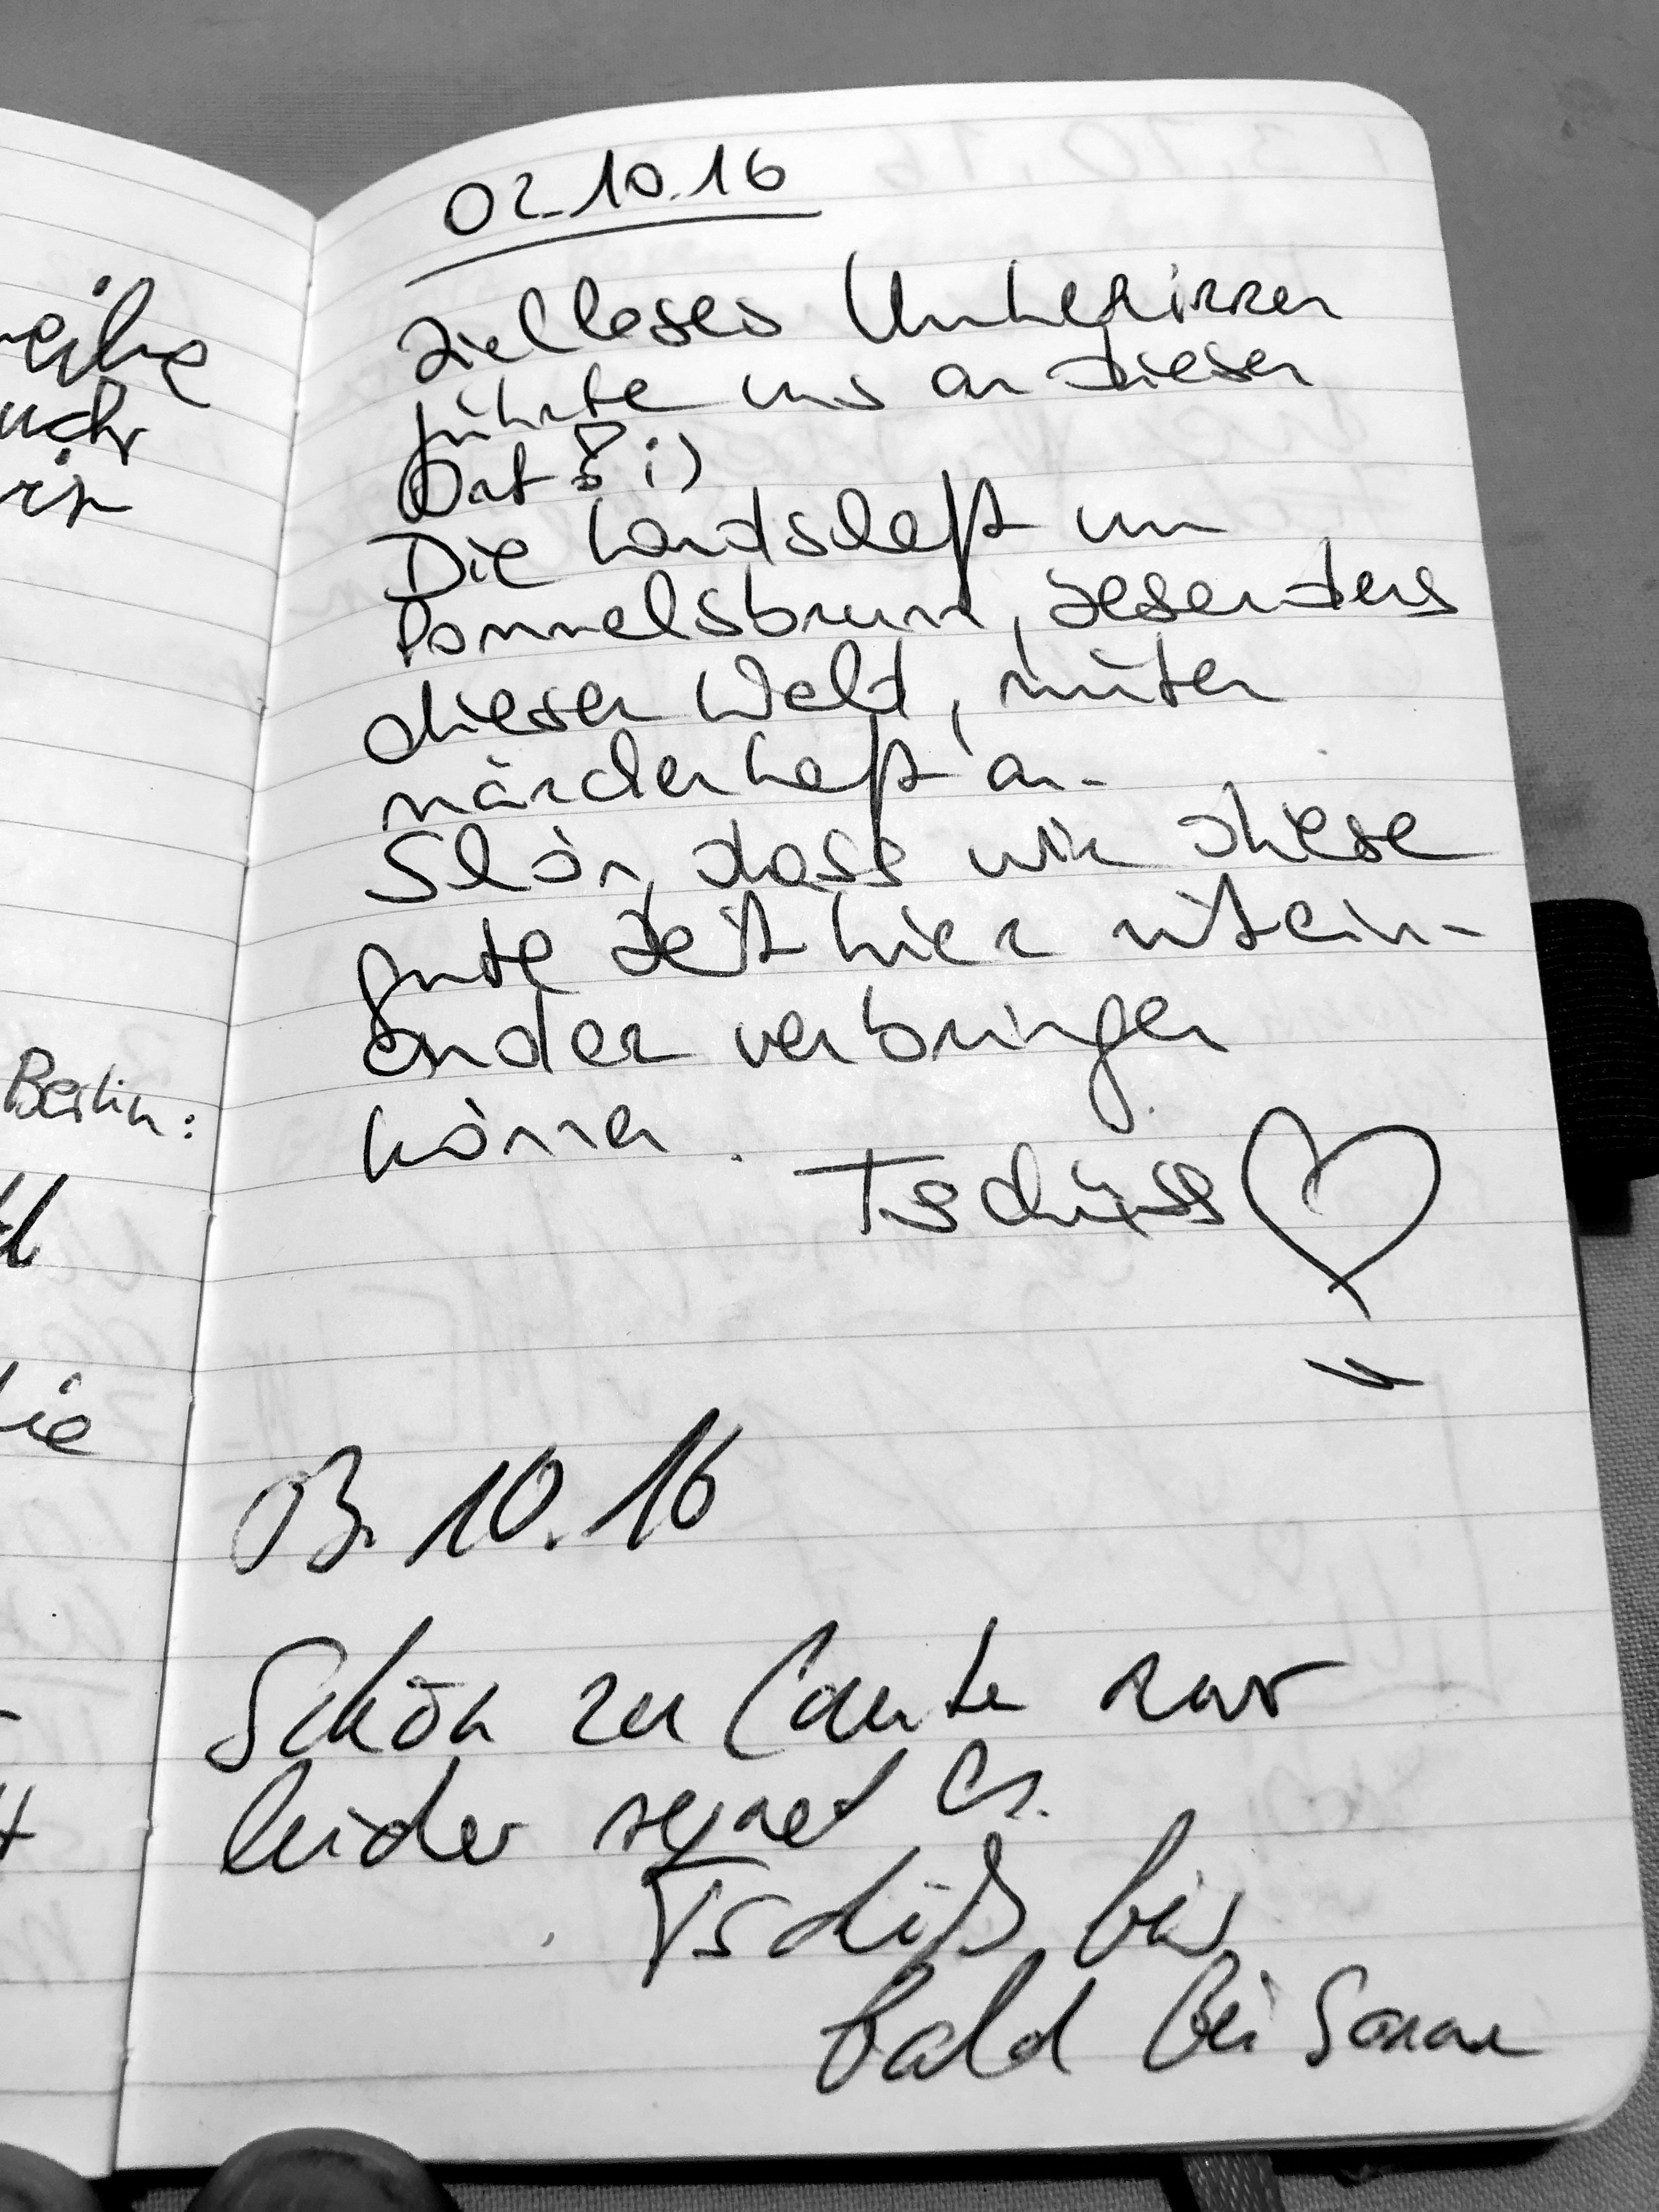 eibe
uch
ir
Berlin:
ie
02.10.16
Zielloses Umherirren
führte uns an diesen
Ort! ;)
Die Landschaft um
Pommelsbrunn, besonders
dieser Wald, muten
märchenhaft an.
Schön, dass wir diese
gute Zeit hier mitein-
ander verbringen
können.
Tschüss
03.10.16
Schön zu laufen nur
leider regnet es.
Tschüß bis
bald bei Sonne